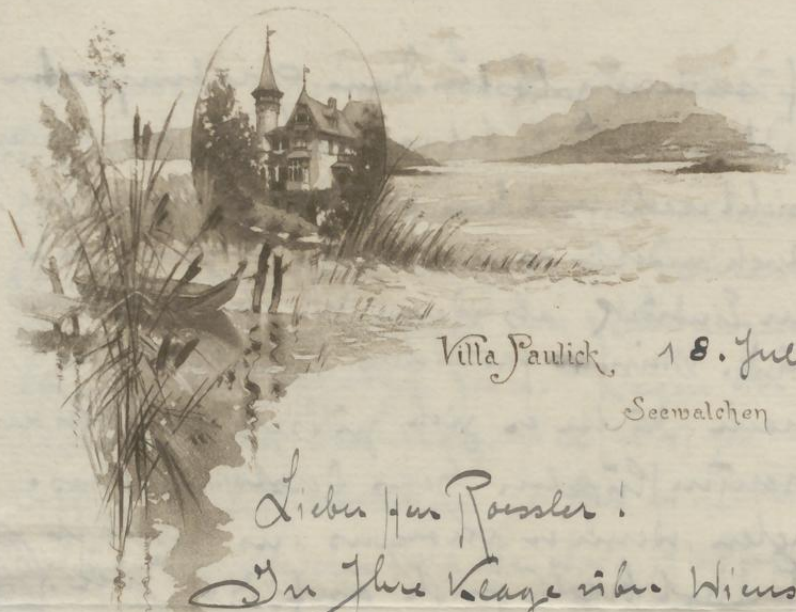 Villa Paulick, 18. Jul
Seewalchen
Lieber Herr Roessler!
In Ihre Klage über Wiens